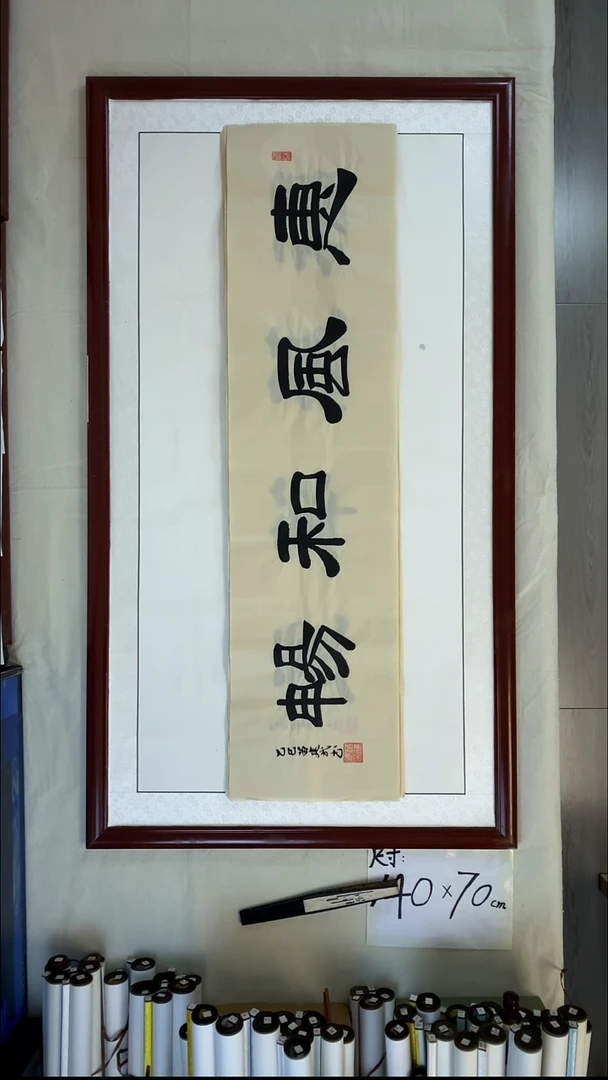 惠風和暢
乙巳
尺寸:
140×70cm